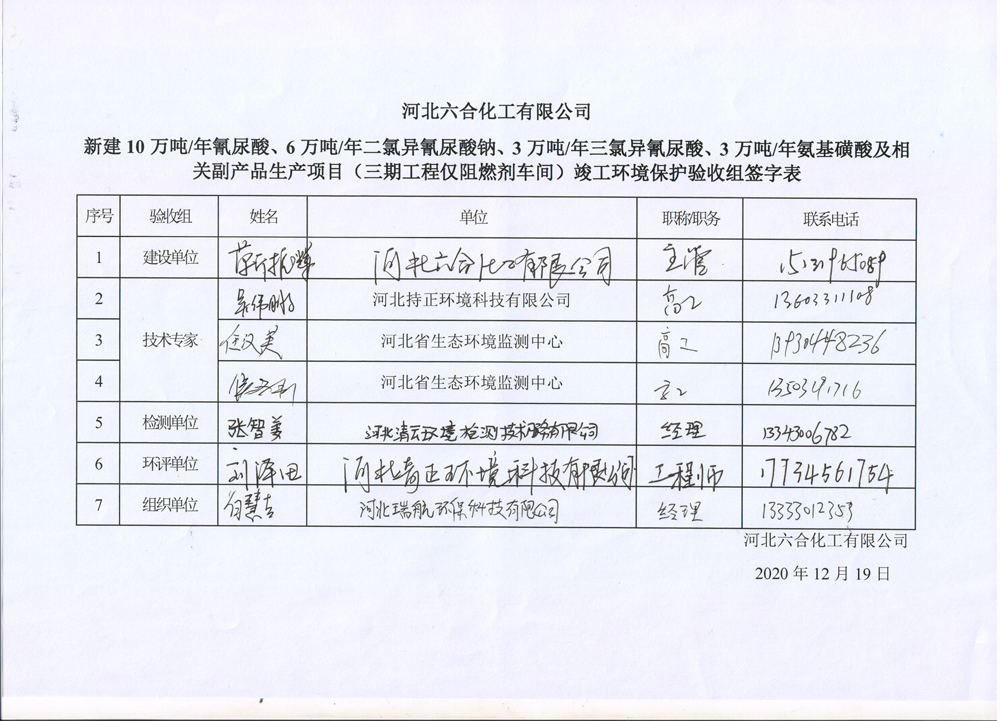 河北六合化工有限公司
新建 10 万吨/年氰尿酸、6 万吨/年二氯异氰尿酸钠、3 万吨/年三氯异氰尿酸、3 万吨/年氨基磺酸及相
关副产品生产项目（三期工程仅阻燃剂车间）竣工环境保护验收组签字表
序号 验收组 姓名 单位 职称/职务 联系电话
1 建设单位 河北六合化工有限公司 主管
2 河北持正环境科技有限公司 高工 13603311108
技术专家
3 任文美 河北省生态环境监测中心 高工 13930448236
4 河北省生态环境监测中心 高工
5 检测单位 张智姜 河北清云环境检测技术服务有限公司 经理 13343006782
6 环评单位 刘泽田 河北奇正环境科技有限公司 工程师 17734561754
7 组织单位 河北瑞航环保科技有限公司 经理 13333012353
河北六合化工有限公司
2020 年 12 月 19 日